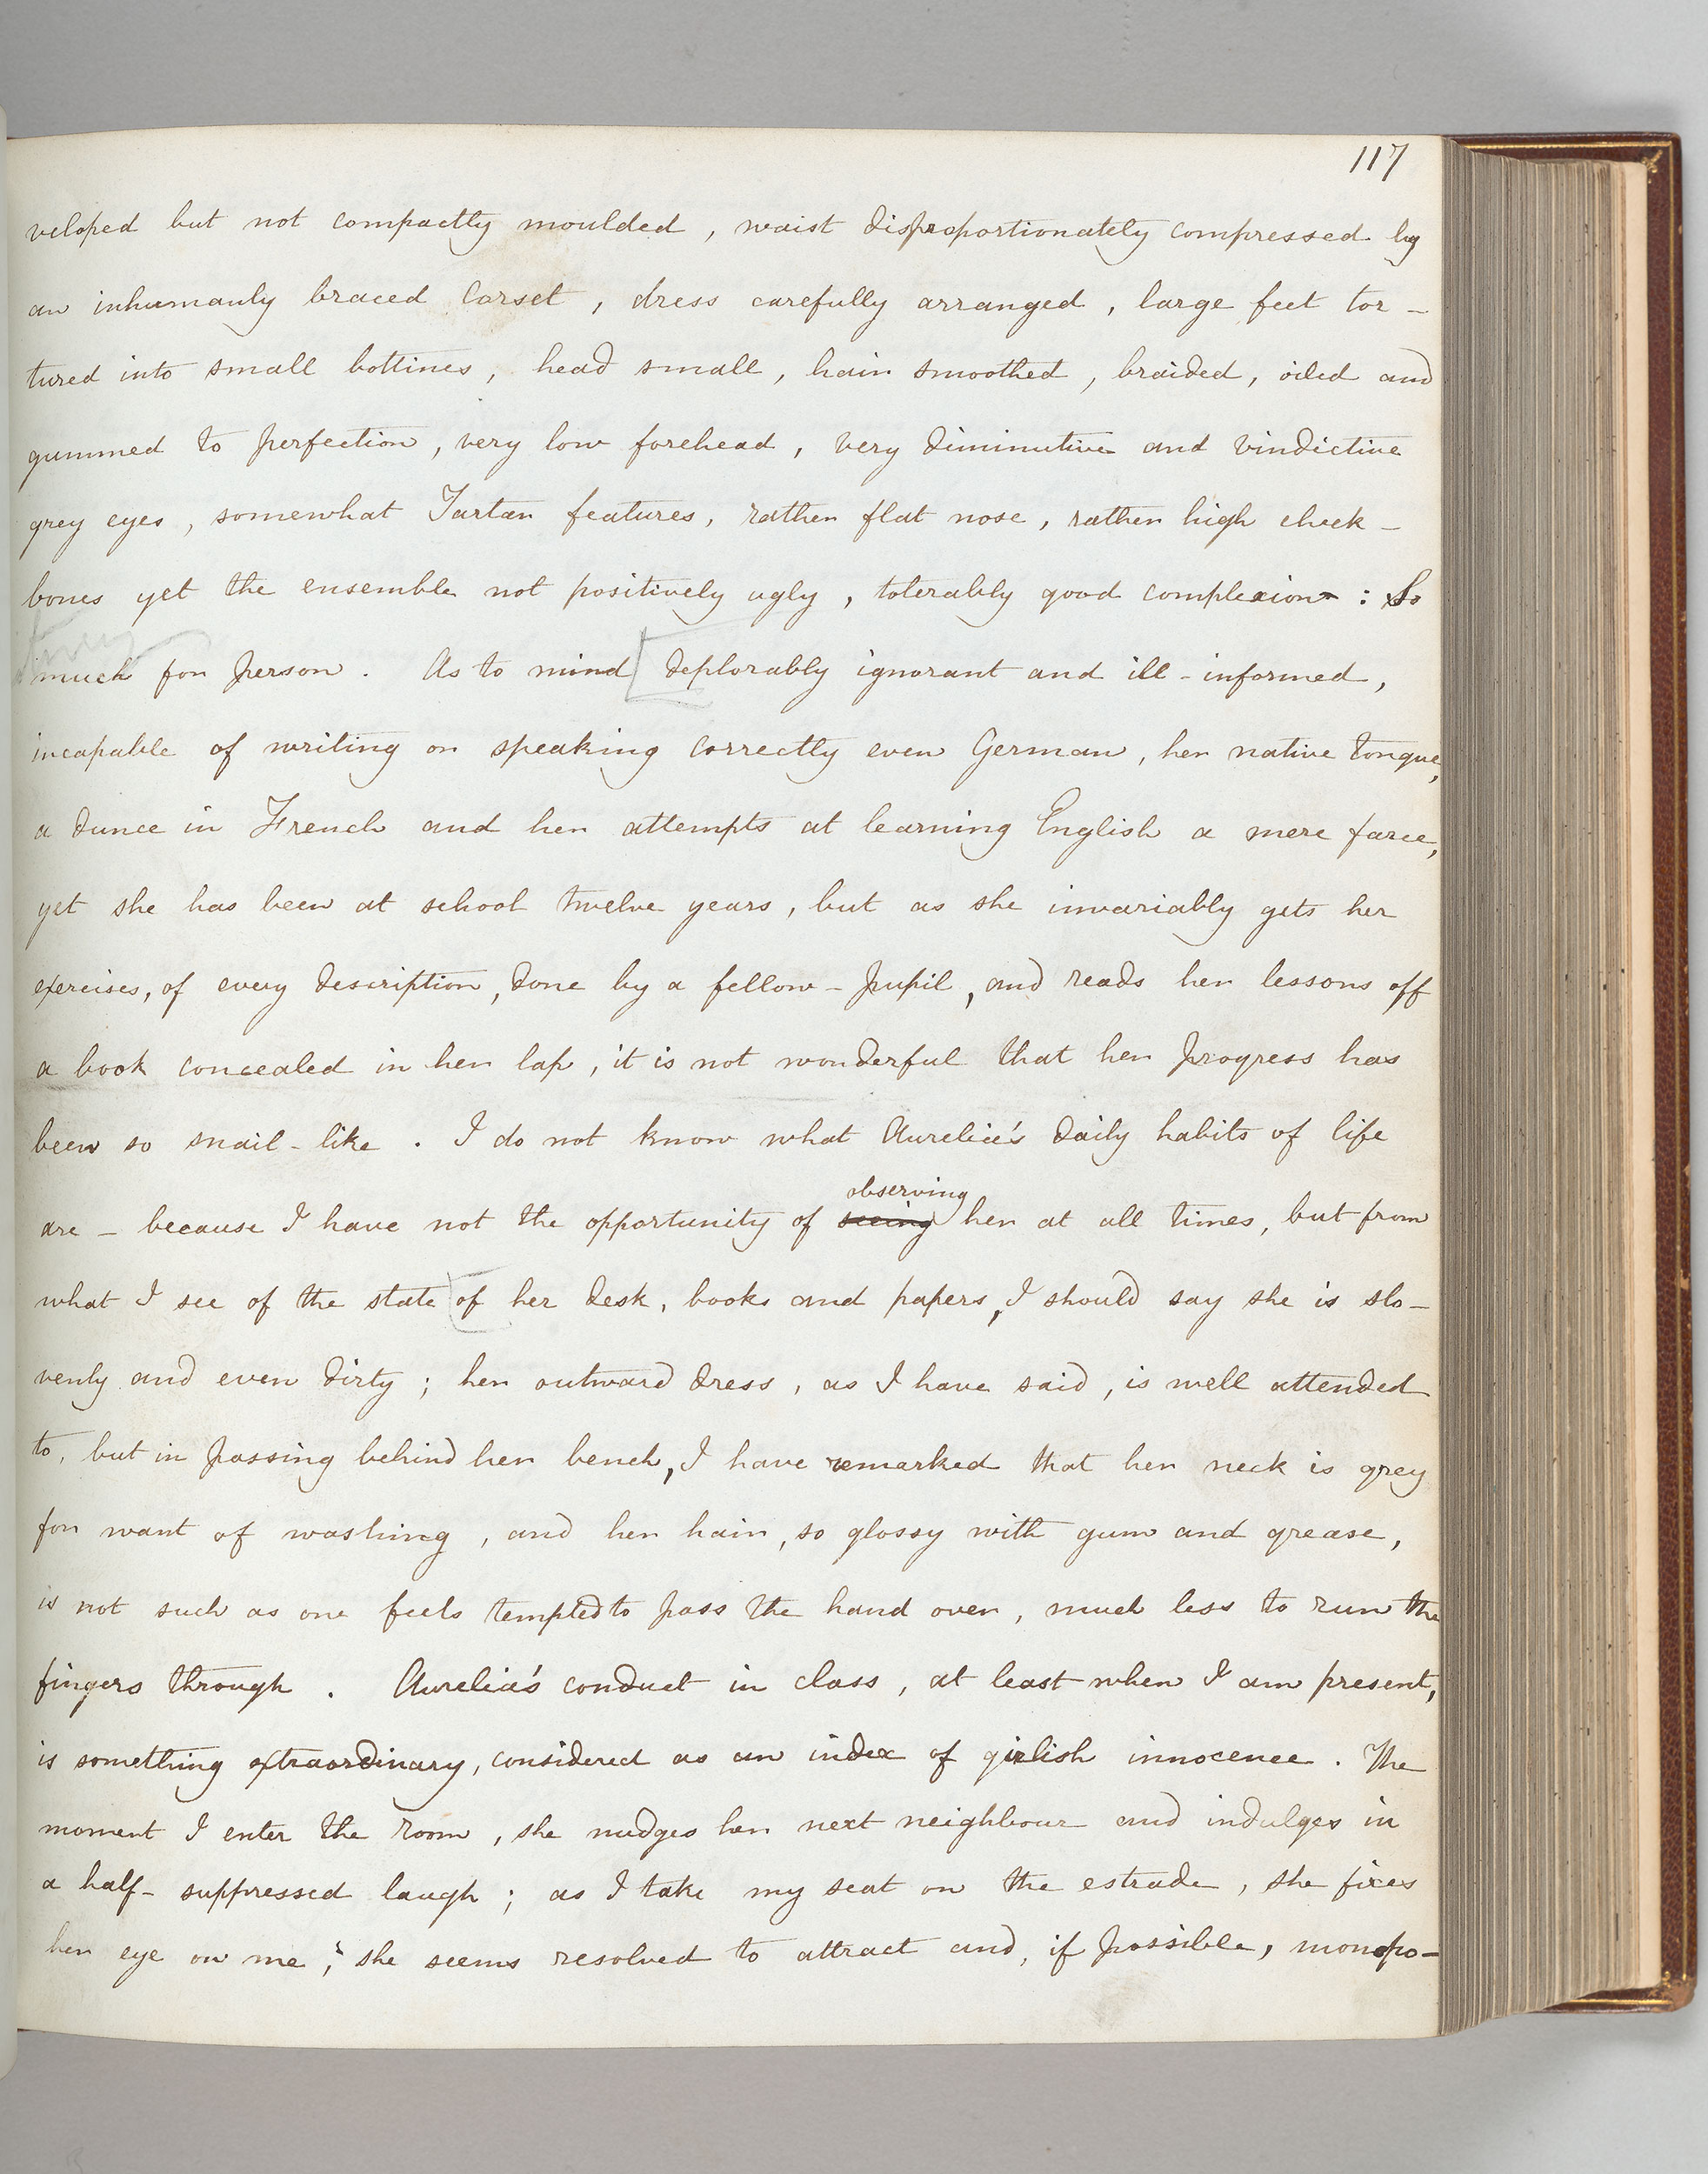 117
veloped but not compactly moulded, waist disproportionately compressed by
an inhumanly braced corset, dress carefully arranged, large feet tor-
tured into small bottines, head small, hair smoothed, braided, oiled and
gummed to perfection, very low forehead, very diminutive and vindictive
grey eyes, somewhat Tartar features, rather flat nose, rather high cheek-
bones yet the ensemble not positively ugly, tolerably good complexion: So
much for person. As to mind [deplorably ignorant and ill-informed,
incapable of writing or speaking correctly even German, her native tongue,
a dunce in French and her attempts at learning English a mere farce,
yet she has been at school twelve years, but as she invariably gets her
exercises, of every description, done by a fellow-pupil, and reads her lessons off
a book concealed in her lap, it is not wonderful that her progress has
been so snail-like. I do not know what Aurelia's daily habits of life
observing
are – because I have not the opportunity of seeing her at all times, but from
what I see of the state [of her desk, books and papers, I should say she is slo-
venly and even dirty; her outward dress, as I have said, is well attended
to, but in passing behind her bench, I have remarked that her neck is grey
for want of washing, and her hair, so glossy with gum and grease,
is not such as one feels tempted to pass the hand over, much less to run the
fingers through. Aurelia's conduct in class, at least when I am present,
is something extraordinary, considered as an index of girlish innocence. The
moment I enter the room, she nudges her next neighbour and indulges in
a half-suppressed laugh; as I take my seat on the estrade, she fixes
her eye on me; she seems resolved to attract and, if possible, monopo-